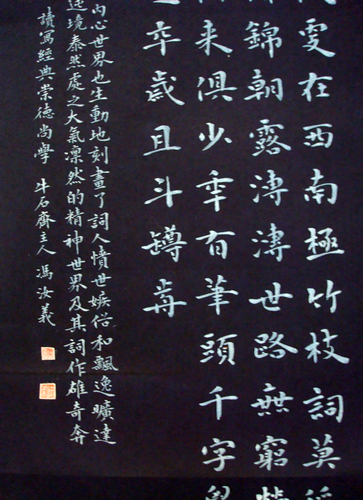 在西南極竹枝詞莫
錦朝露漙漙世路無窮
來俱少年有筆頭千字
卒歲且斗罇歬
内心世界也生動地刻畫了詞人憤世嫉俗和飄逸曠達
逆境泰然處之大氣凜然的精神世界及其詞作雄奇奔
讀寫經典崇德尚學 牛石齋主人馮汝義